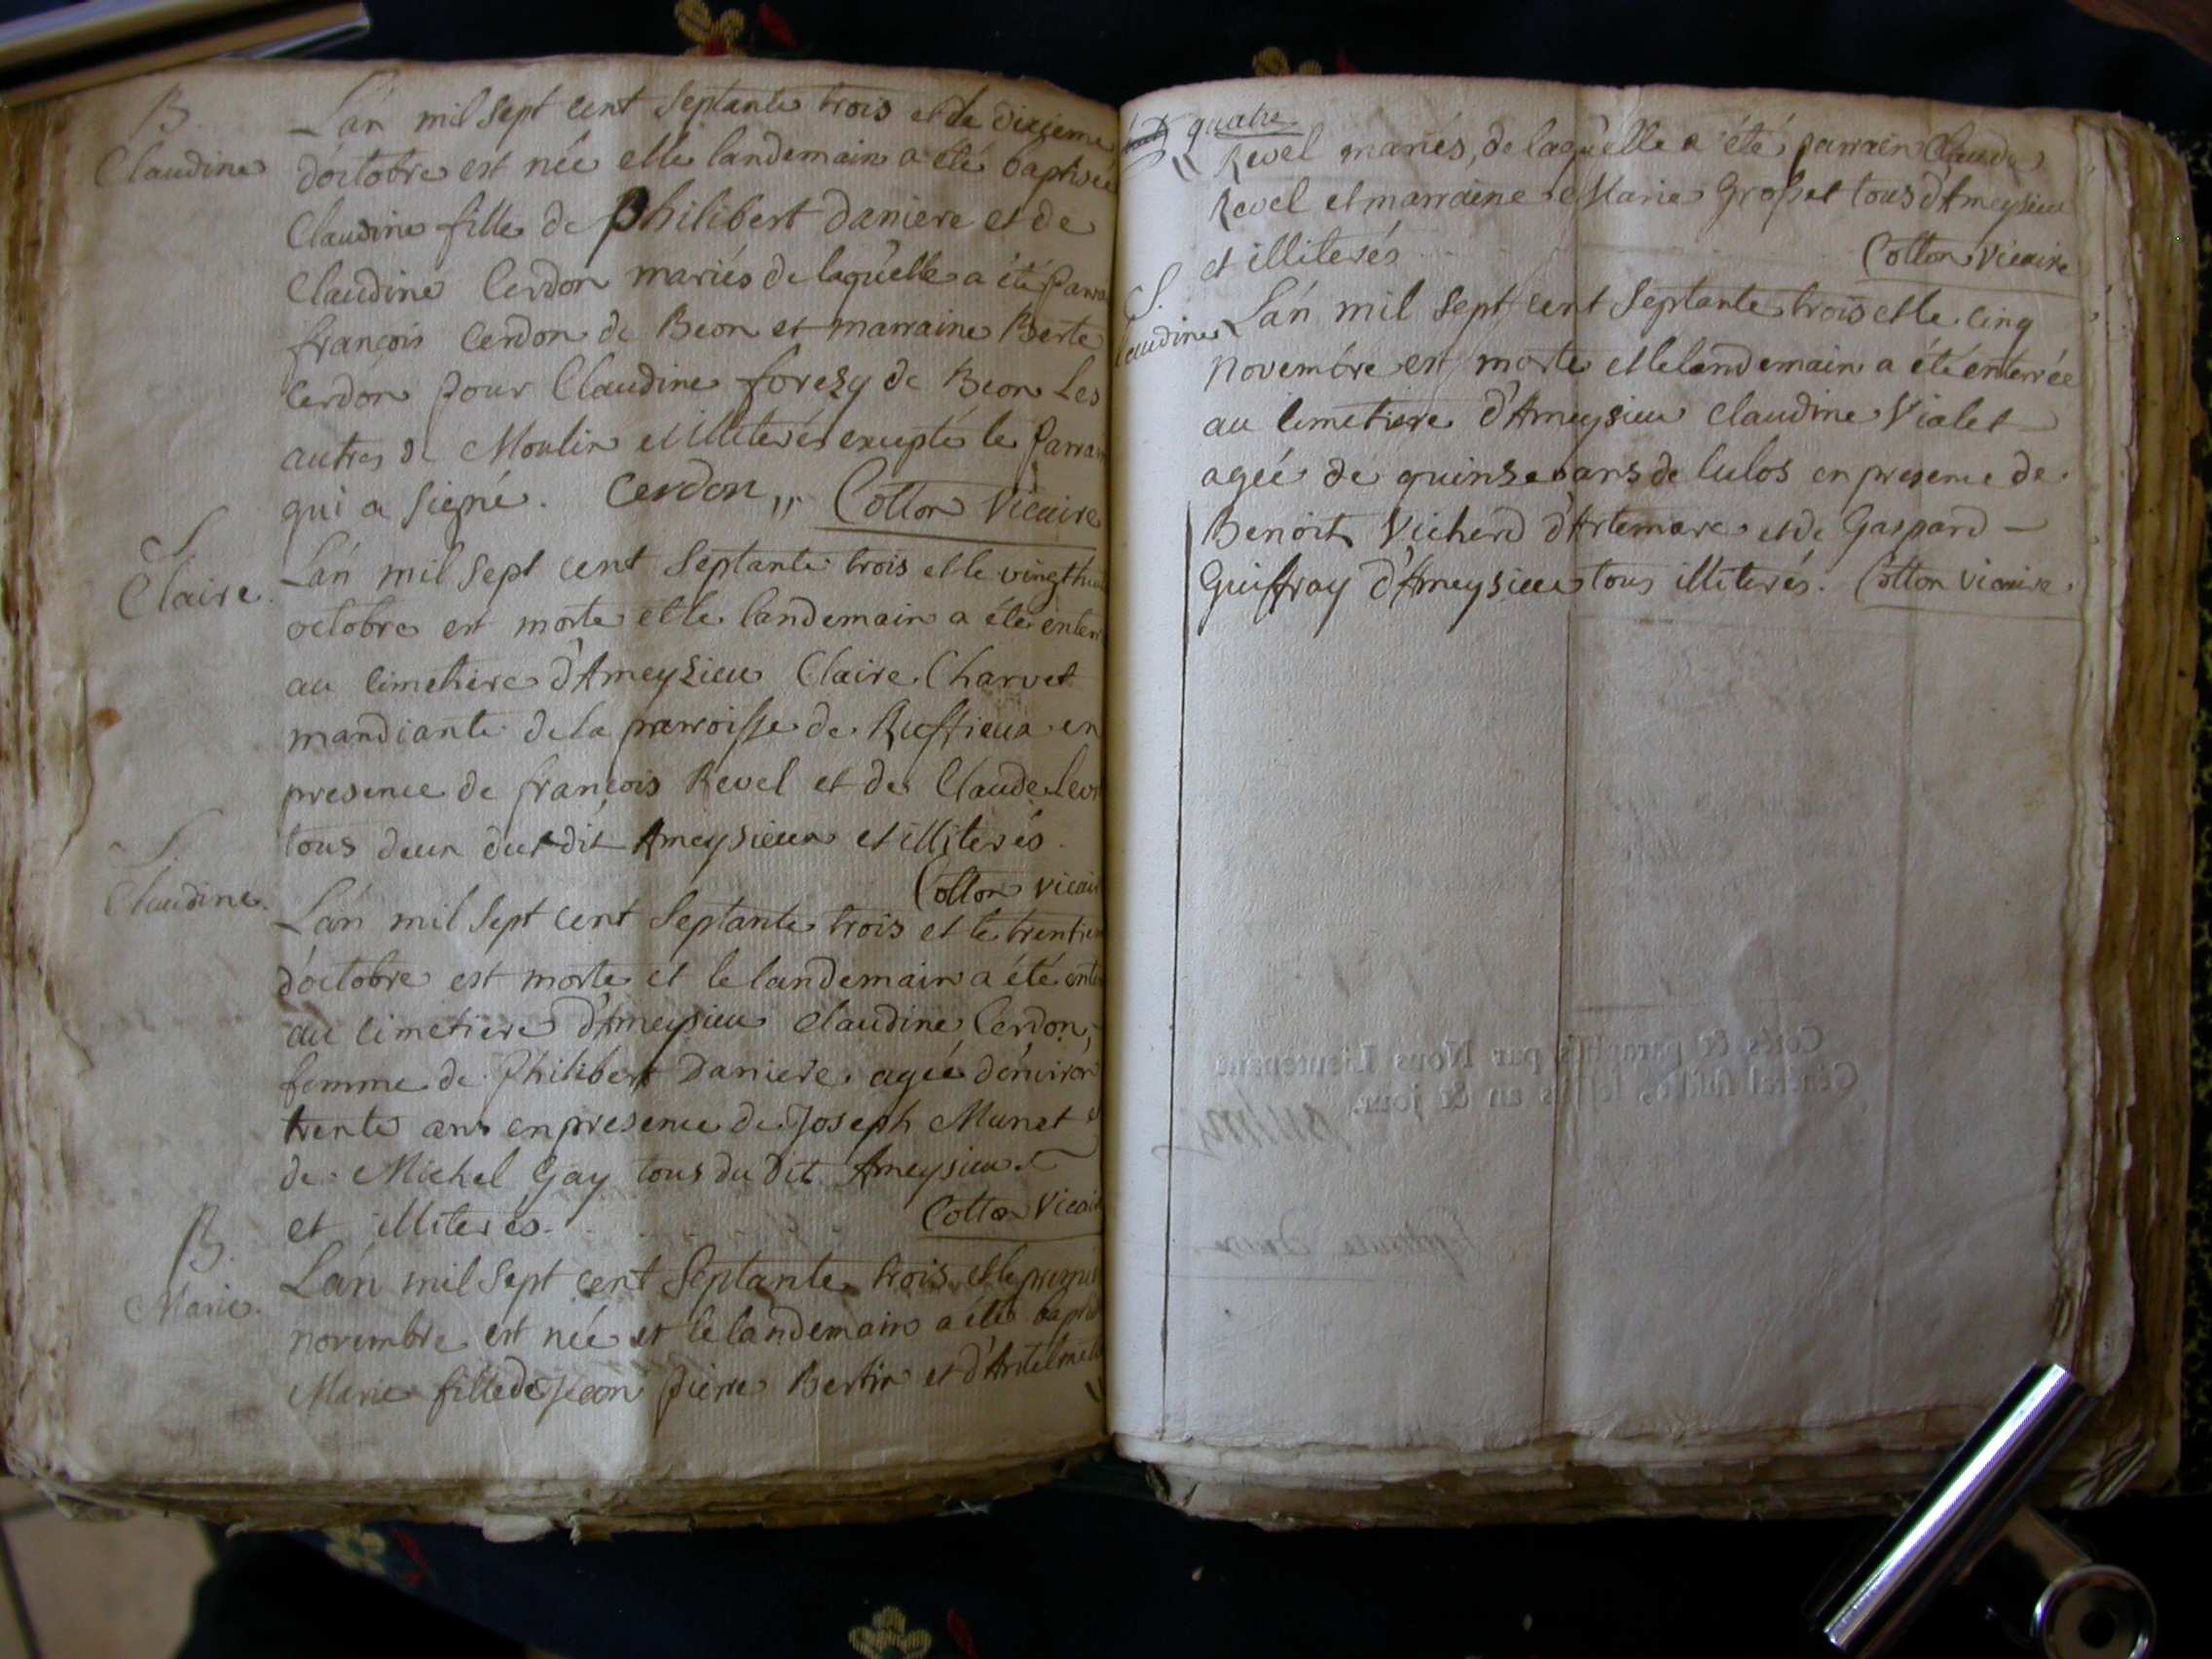 B
Claudine
L'an mil sept cent septante trois et le dixieme
d'octobre est née et le landemain a été baptisée
Claudine fille de Philibert daniere et de
Claudine Cerdon mariés de laquelle a été parra
françois Cerdon de Beon et marraine Berte
Cerdon pour Claudine foresy de Beon Les
autres de Moulin et illiterés excepté le parrain
qui a signé. Cerdon,, Cotton Vicaire
S
Claire.
L'an mil sept cent septante trois et le vingthui
octobre est morte et le landemain a été enterr
au cimetiere d'Ameyzieu Claire Charvet
mandiante de la parroisse de Ruffieux en
presence de françois Revel et de Claude
tous deux du dit Ameysieux et illiterés.
Cotton vicair
S
Claudine.
L'an mil sept cent septante trois et le trentiem
d'octobre est morte et le landemain a été ente
au cimetiere d'Ameysieu Claudine Cerdon,
femme de Philibert Daniere agée d'environ
trente ans en presence de Joseph Munet et
de Michel Gay tous du dit Ameysieu
et illiterés. Cotton Vicair
B.
Marie.
L'an mil sept cent septante trois et le premie
novembre est née et le landemain a été bapti
Marie fille de Jean pierre Bertin et d'
quatre
Revel mariés, de laquelle a été parrain Claude
Revel et marraine Marie Grosset tous d'Ameysieu
et illiterés Cotton Vicaire
S.
Claudine
L'an mil sept cent septante trois et le cinq
novembre est morte et le landemain a été enterrée
au cimetiere d'Ameysieu Claudine Vialet
agée de quinse ans de Culos en presence de
Benoit Vicherd d'Artemare et de Gaspard
Guiffray d'Ameysieu tous illiterés. Cotton vicaire.
Cotés & paraphés par Nous Lieutenant
Général susdit, lesdits an & jour.